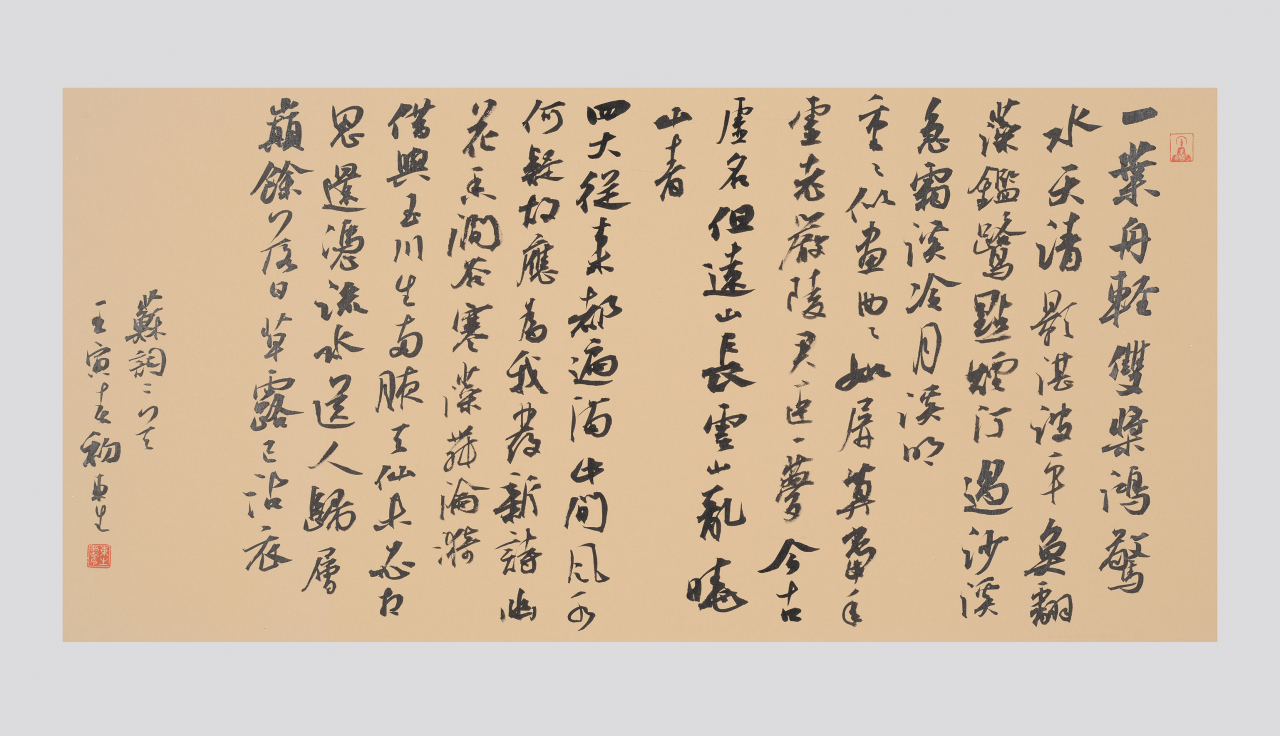 一葉舟輕雙槳鴻驚
水天清影湛波平魚翻
藻鑑鷺點煙汀過沙溪
急霜溪冷月溪明
重〻似畫曲〻如屏算當年
虛老嚴陵君臣一夢今古
虛名但遠山長雲山亂曉
山青
四大從來都遍滿此間風水
何疑故應為我發新詩幽
花香澗谷寒藻舞淪漪
借與玉川生兩腋天仙未必相
思還憑流水送人歸層
巔餘落日草露已沾衣
蘇詞二首
壬寅初東生